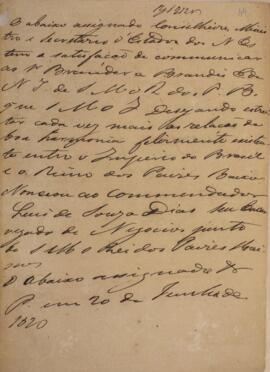 O abaixo assignado Conselheiro, Minis
tro e Secretario d'Estado dos N. Es
tem a satisfação de communicar
ao Sr Brender a Brandis
que S M O I Desejando estrei
tar cada vez mais as relações de
boa harmonia felizmente existen
te entre o Imperio do Brasil
e o Reino dos Paizes Baixos
Nomeou ao commendador
Luis de Souza Dias seu Encar
regado de Negocios junto
a S M O Rei dos Paizes Bai
xos
O abaixo assignado &
P. em 20 de Junho de